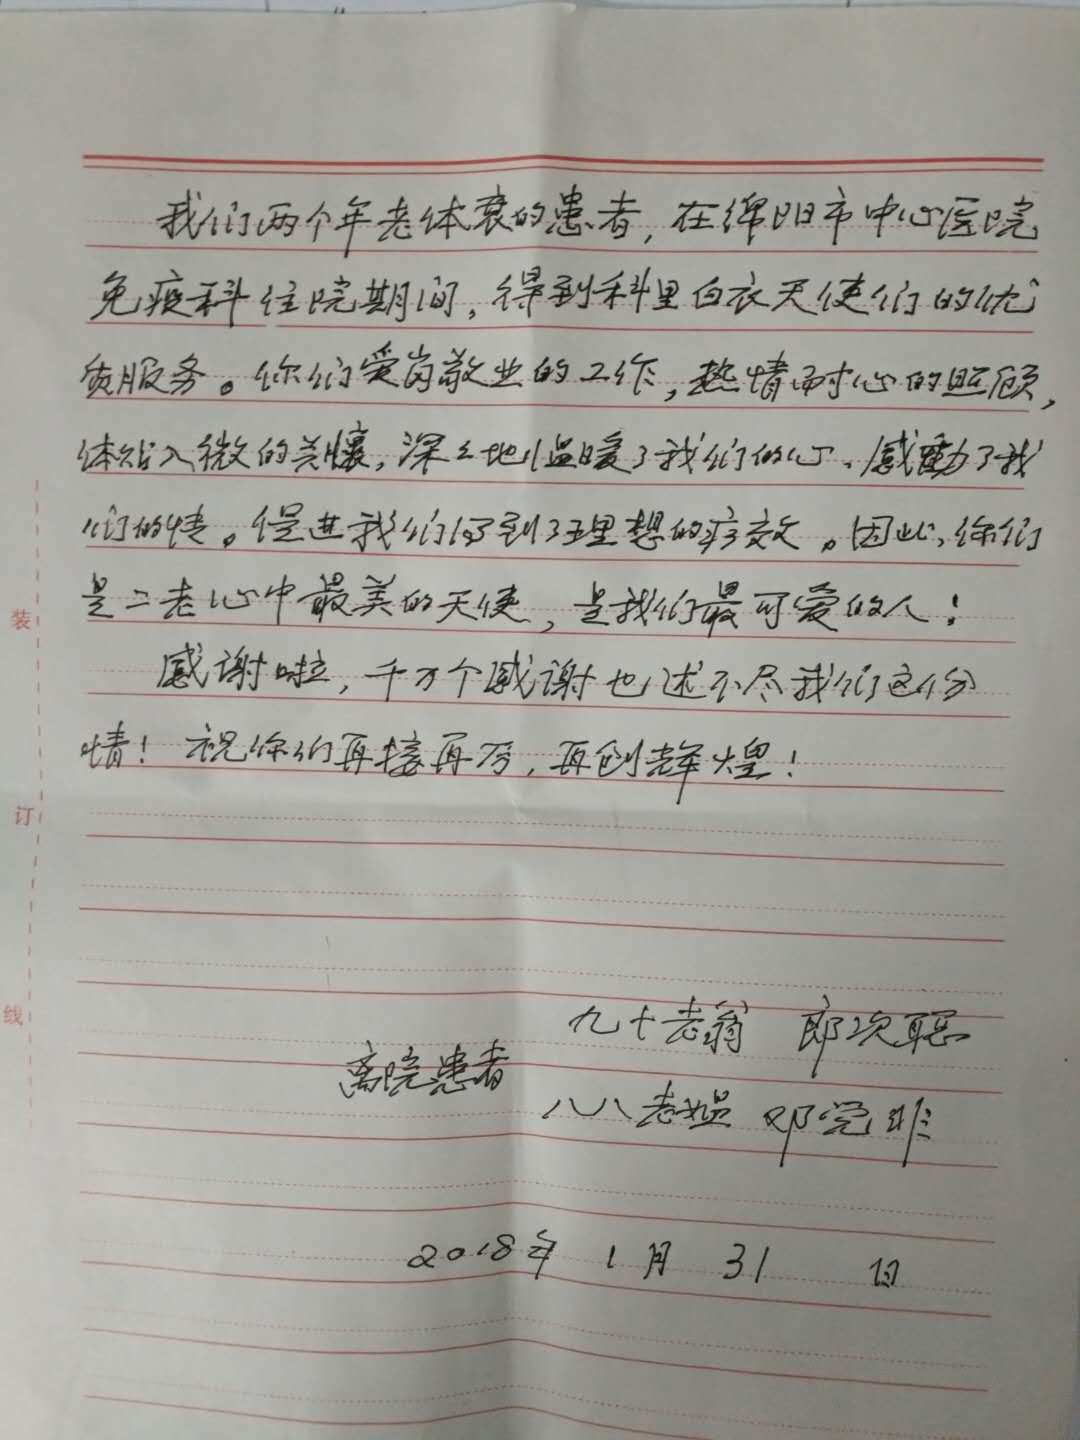 我们两个年老体衰的患者，在绵阳市中心医院
免疫科住院期间，得到科里白衣天使们的优
质服务。你们爱岗敬业的工作，热情耐心的照顾，
体贴入微的关懷，深々地温暖了我们的心、感動了我
们的情。促进我们得到了理想的疗效。因此，你们
是二老心中最美的天使，是我们最可爱的人！
感谢啦，千万个感谢也述不尽我们这份
情！祝你们再接再厉，再创辉煌！
装
订
线
九十老翁 郎次聪
离院患者
八八老媪 邓
2018年 1月 31 日